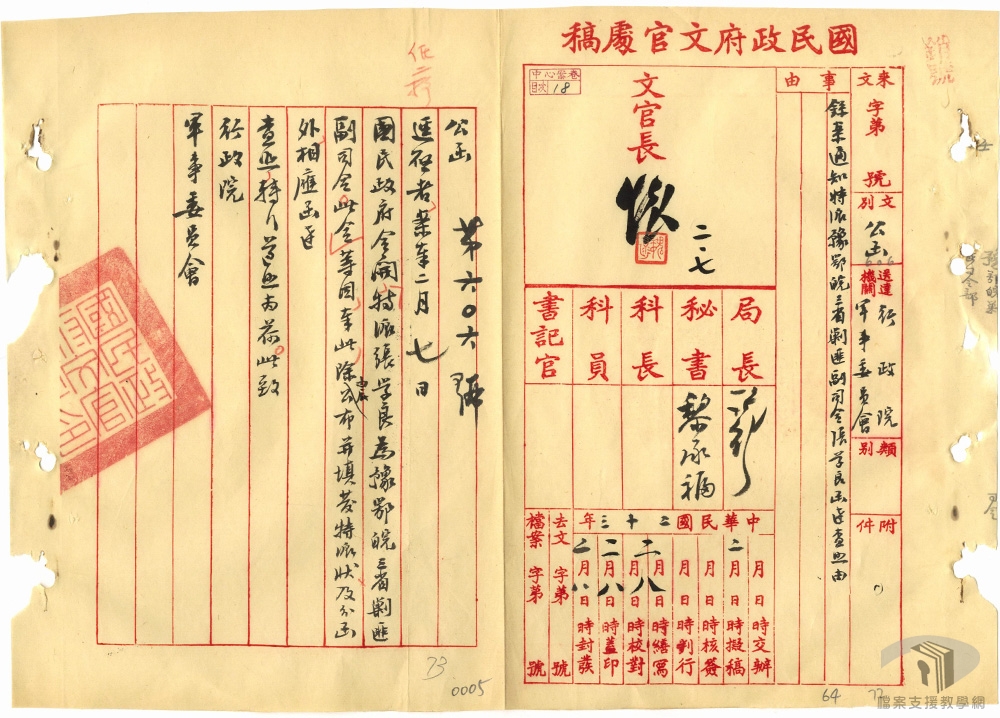 國民政府文官處稿
來文
字第
號
事由
錄案通知特派豫鄂皖三省剿匪副司令張學良函達查照由
文別
公函
606
送達機關
行政院
軍事委員會
類別
附件
中心檔卷
目次
18
文官長
懷
二.七
局長
秘書
黎承福
科長
科員
書記官
中華民國二十三年
二月 日 時交辦
月 日 時擬稿
月 日 時核簽
月 日 時判行
二月八日 時繕寫
月 日 時校對
二月八日 時蓋印
二月八日 時封發
去文 字第 號
檔案 字第 號
公函 第六〇六號
逕啓者案奉二月七日
國民政府令開特派張學良為豫鄂皖三省剿匪
副司令此令等因奉此除公布并填發特派狀及分函
外相應函達
查照轉行遵照為荷此致
行政院
軍事委員會
73
0005
64
77
檔案支援教學網